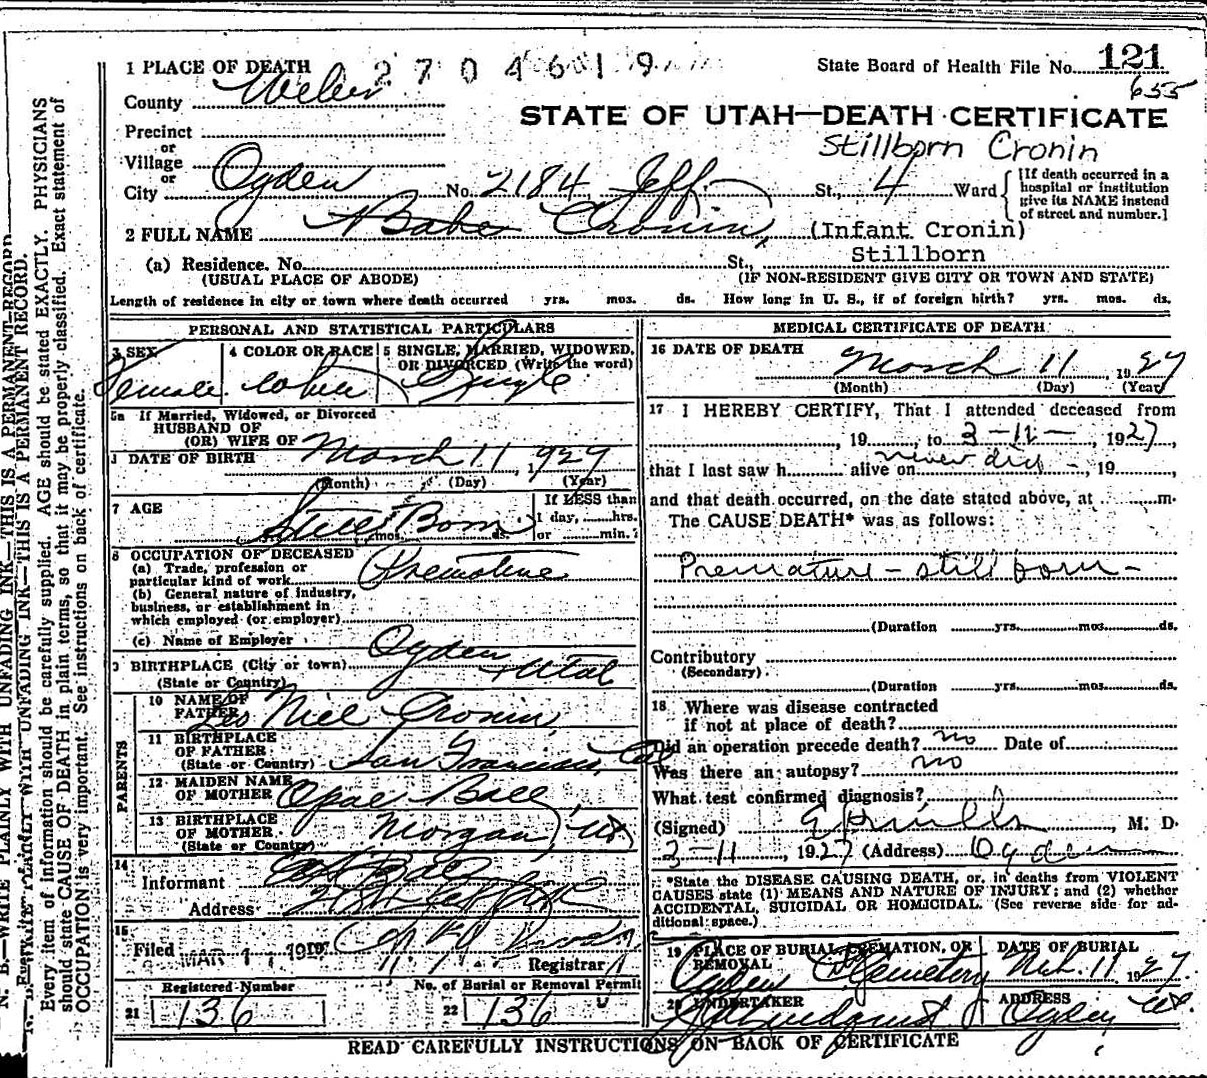 1 PLACE OF DEATH 2704619 State Board of Health File No. 121
655
County Weber
STATE OF UTAH—DEATH CERTIFICATE
Precinct
or
Stillborn Cronin
Village
or
City Ogden No. 2184 Jeff. St., 4 Ward
[If death occurred in a
hospital or institution
give its NAME instead
of street and number.]
2 FULL NAME Babe Cronin, (Infant Cronin)
Stillborn
(a) Residence. No. St.,
(USUAL PLACE OF ABODE) (IF NON-RESIDENT GIVE CITY OR TOWN AND STATE)
Length of residence in city or town where death occurred yrs. mos. ds. How long in U. S., if of foreign birth? yrs. mos. ds.
PERSONAL AND STATISTICAL PARTICULARS
3 SEX 4 COLOR OR RACE 5 SINGLE, MARRIED, WIDOWED,
OR DIVORCED (Write the word)
Female White Single
5a If Married, Widowed, or Divorced
HUSBAND OF
(OR) WIFE OF
DATE OF BIRTH March 11, 1927
(Month) (Day) (Year)
7 AGE Still Born mos. ds.
If LESS than
1 day, hrs.
or min.?
8 OCCUPATION OF DECEASED
(a) Trade, profession or
particular kind of work
(b) General nature of industry,
business, or establishment in
which employed (or employer)
(c) Name of Employer
BIRTHPLACE (City or town) Ogden
(State or Country) Utah
PARENTS
10 NAME OF
FATHER Leo Niel Cronin,
11 BIRTHPLACE
OF FATHER
(State or Country) San Francisco, Cal
12 MAIDEN NAME
OF MOTHER Opal Ball,
13 BIRTHPLACE
OF MOTHER
(State or Country) Morgan, Ut
14
Informant Ball
Address
15
Filed MAR 1 19
Registrar
Registered Number No. of Burial or Removal Permit
21 136 22 136
MEDICAL CERTIFICATE OF DEATH
16 DATE OF DEATH
March 11, 1927
(Month) (Day) (Year)
17 I HEREBY CERTIFY, That I attended deceased from
, 19 , to 3-11-, 1927,
that I last saw h alive on never did -, 19 ,
and that death occurred, on the date stated above, at m.
The CAUSE DEATH* was as follows:
Premature - still born -
(Duration yrs. mos. ds.
Contributory
(Secondary)
(Duration yrs. mos. ds.
18 Where was disease contracted
if not at place of death?
Did an operation precede death? no Date of
Was there an autopsy? no
What test confirmed diagnosis?
(Signed) , M. D.
3-11, 1927 (Address) Ogden
*State the DISEASE CAUSING DEATH, or, in deaths from VIOLENT
CAUSES state (1) MEANS AND NATURE OF INJURY; and (2) whether
ACCIDENTAL, SUICIDAL OR HOMICIDAL. (See reverse side for ad-
ditional space.)
19 PLACE OF BURIAL, CREMATION, OR
REMOVAL
DATE OF BURIAL
Ogden Cemetery Mch. 11 1927
20 UNDERTAKER ADDRESS
Lindquist Ogden, Ut.
READ CAREFULLY INSTRUCTIONS ON BACK OF CERTIFICATE
N. B.—WRITE PLAINLY WITH UNFADING INK—THIS IS A PERMANENT RECORD
Every item of information should be carefully supplied. AGE should be stated EXACTLY. PHYSICIANS
should state CAUSE OF DEATH in plain terms, so that it may be properly classified. Exact statement of
OCCUPATION is very important. See instructions on back of certificate.